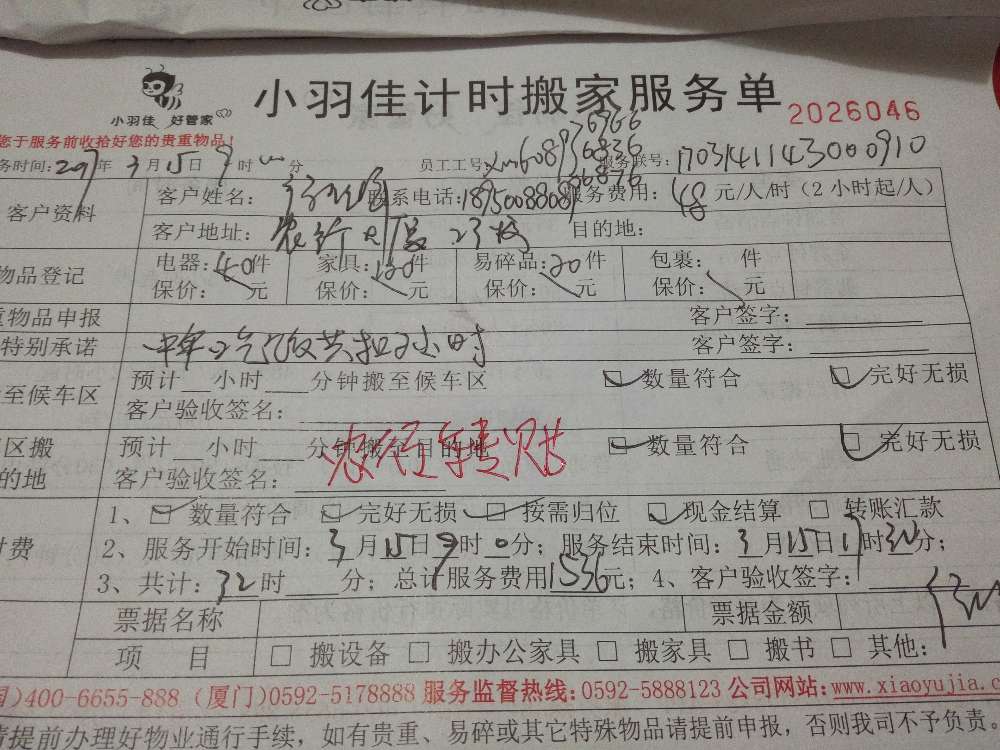 小羽佳 好管家
小羽佳计时搬家服务单
2026046
您于服务前收拾好您的贵重物品！
务时间：2017年3月15日9时 分 员工工号： 服务联号：1703141143000910
客户资料 客户姓名： 联系电话：18950088089 服务费用：48元/人/时（2小时起/人）
客户地址：农行 23楼 目的地：
物品登记 电器：40件 家具：120件 易碎品：20件 包裹： 件
保价： 元 保价： 元 保价： 元 保价： 元
重物品申报 客户签字：
特别承诺 共扣2小时 客户签字：
至候车区 预计 小时 分钟搬至候车区 数量符合 完好无损
客户验收签名：
区搬 预计 小时 分钟搬至目的地 数量符合 完好无损
的地 客户验收签名： 农行转贴
1、 数量符合 完好无损 按需归位 现金结算 转账汇款
付费 2、服务开始时间：3月15日9时0分；服务结束时间：3月15日17时30分；
3、共计：32时 分；总计服务费用1536元；4、客户验收签字：
票据名称 票据金额
项 目 搬设备 搬办公家具 搬家具 搬书 其他：
国)400-6655-888 (厦门)0592-5178888 服务监督热线：0592-5888123 公司网站：www.xiaoyujia.c
请提前办理好物业通行手续，如有贵重、易碎或其它特殊物品请提前申报，否则我司不予负责。